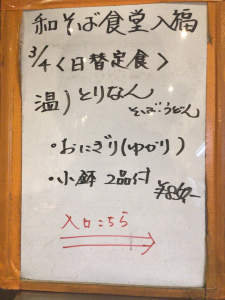 和そば食堂入福
3/4<日替定食>
温)とりなん
そば・うどん
・おにぎり(ゆかり)
・小鉢 2品付
¥850-
入口こちら